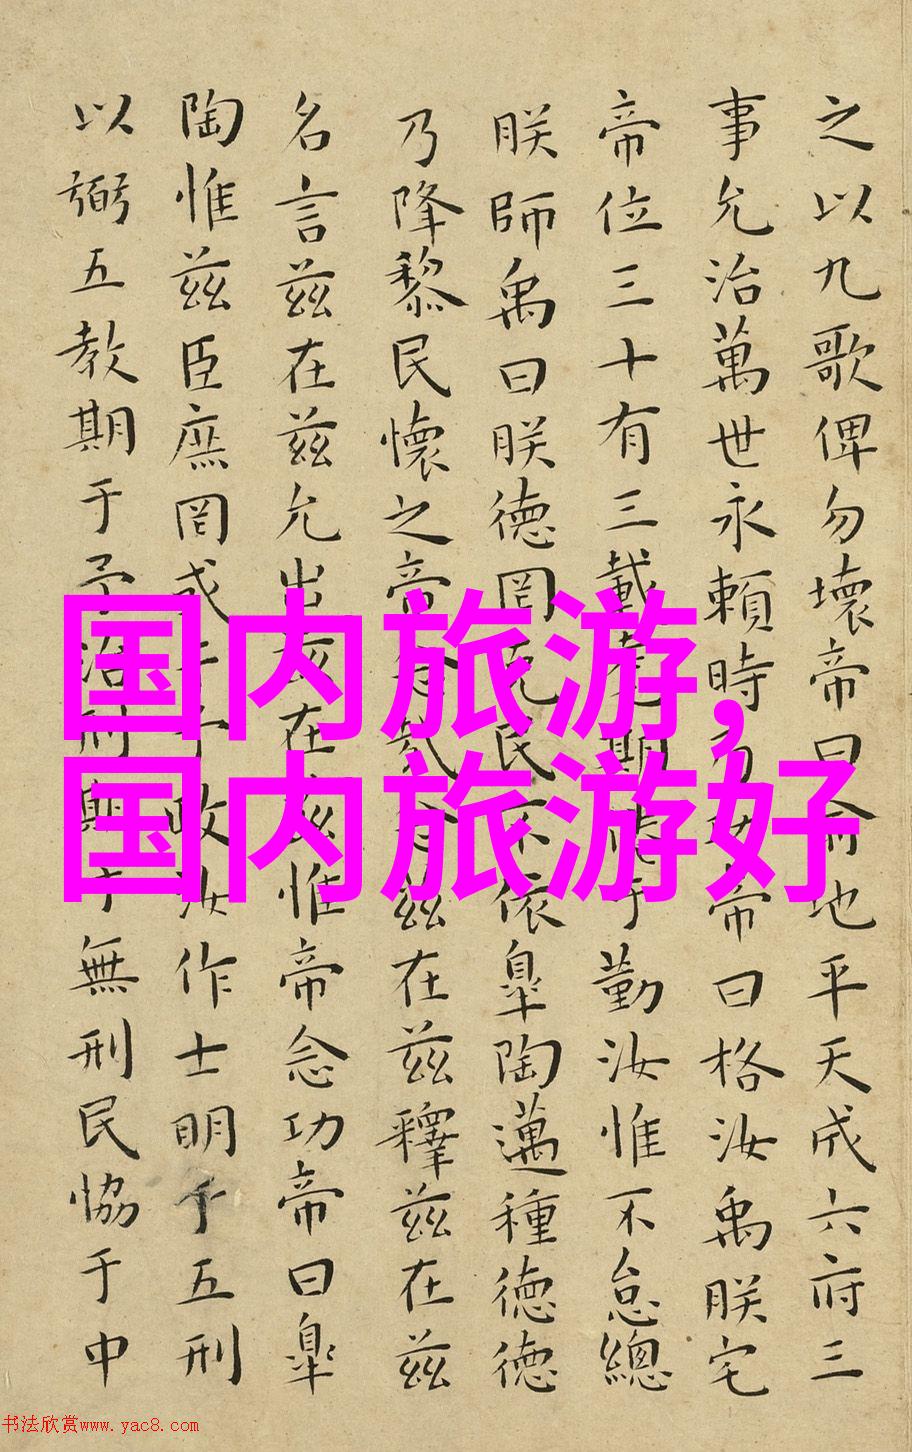 之以九歌俾勿壞帝曰俞地平天成六府三
事允治萬世永賴時乃功帝曰格汝禹朕宅
帝位三十有三載耄期倦于勤汝惟不怠總
朕師禹曰朕德罔克民不依皐陶邁種德德
乃降黎民懷之帝念哉念茲在茲釋茲在茲
名言茲在茲允出茲在茲惟帝念功帝曰皐
陶惟茲臣庶罔或干予政汝作士明于五刑
以弼五教期于予治刑于無刑民協于中
国内旅游,
国内旅游好
书法欣赏www.yac8.com